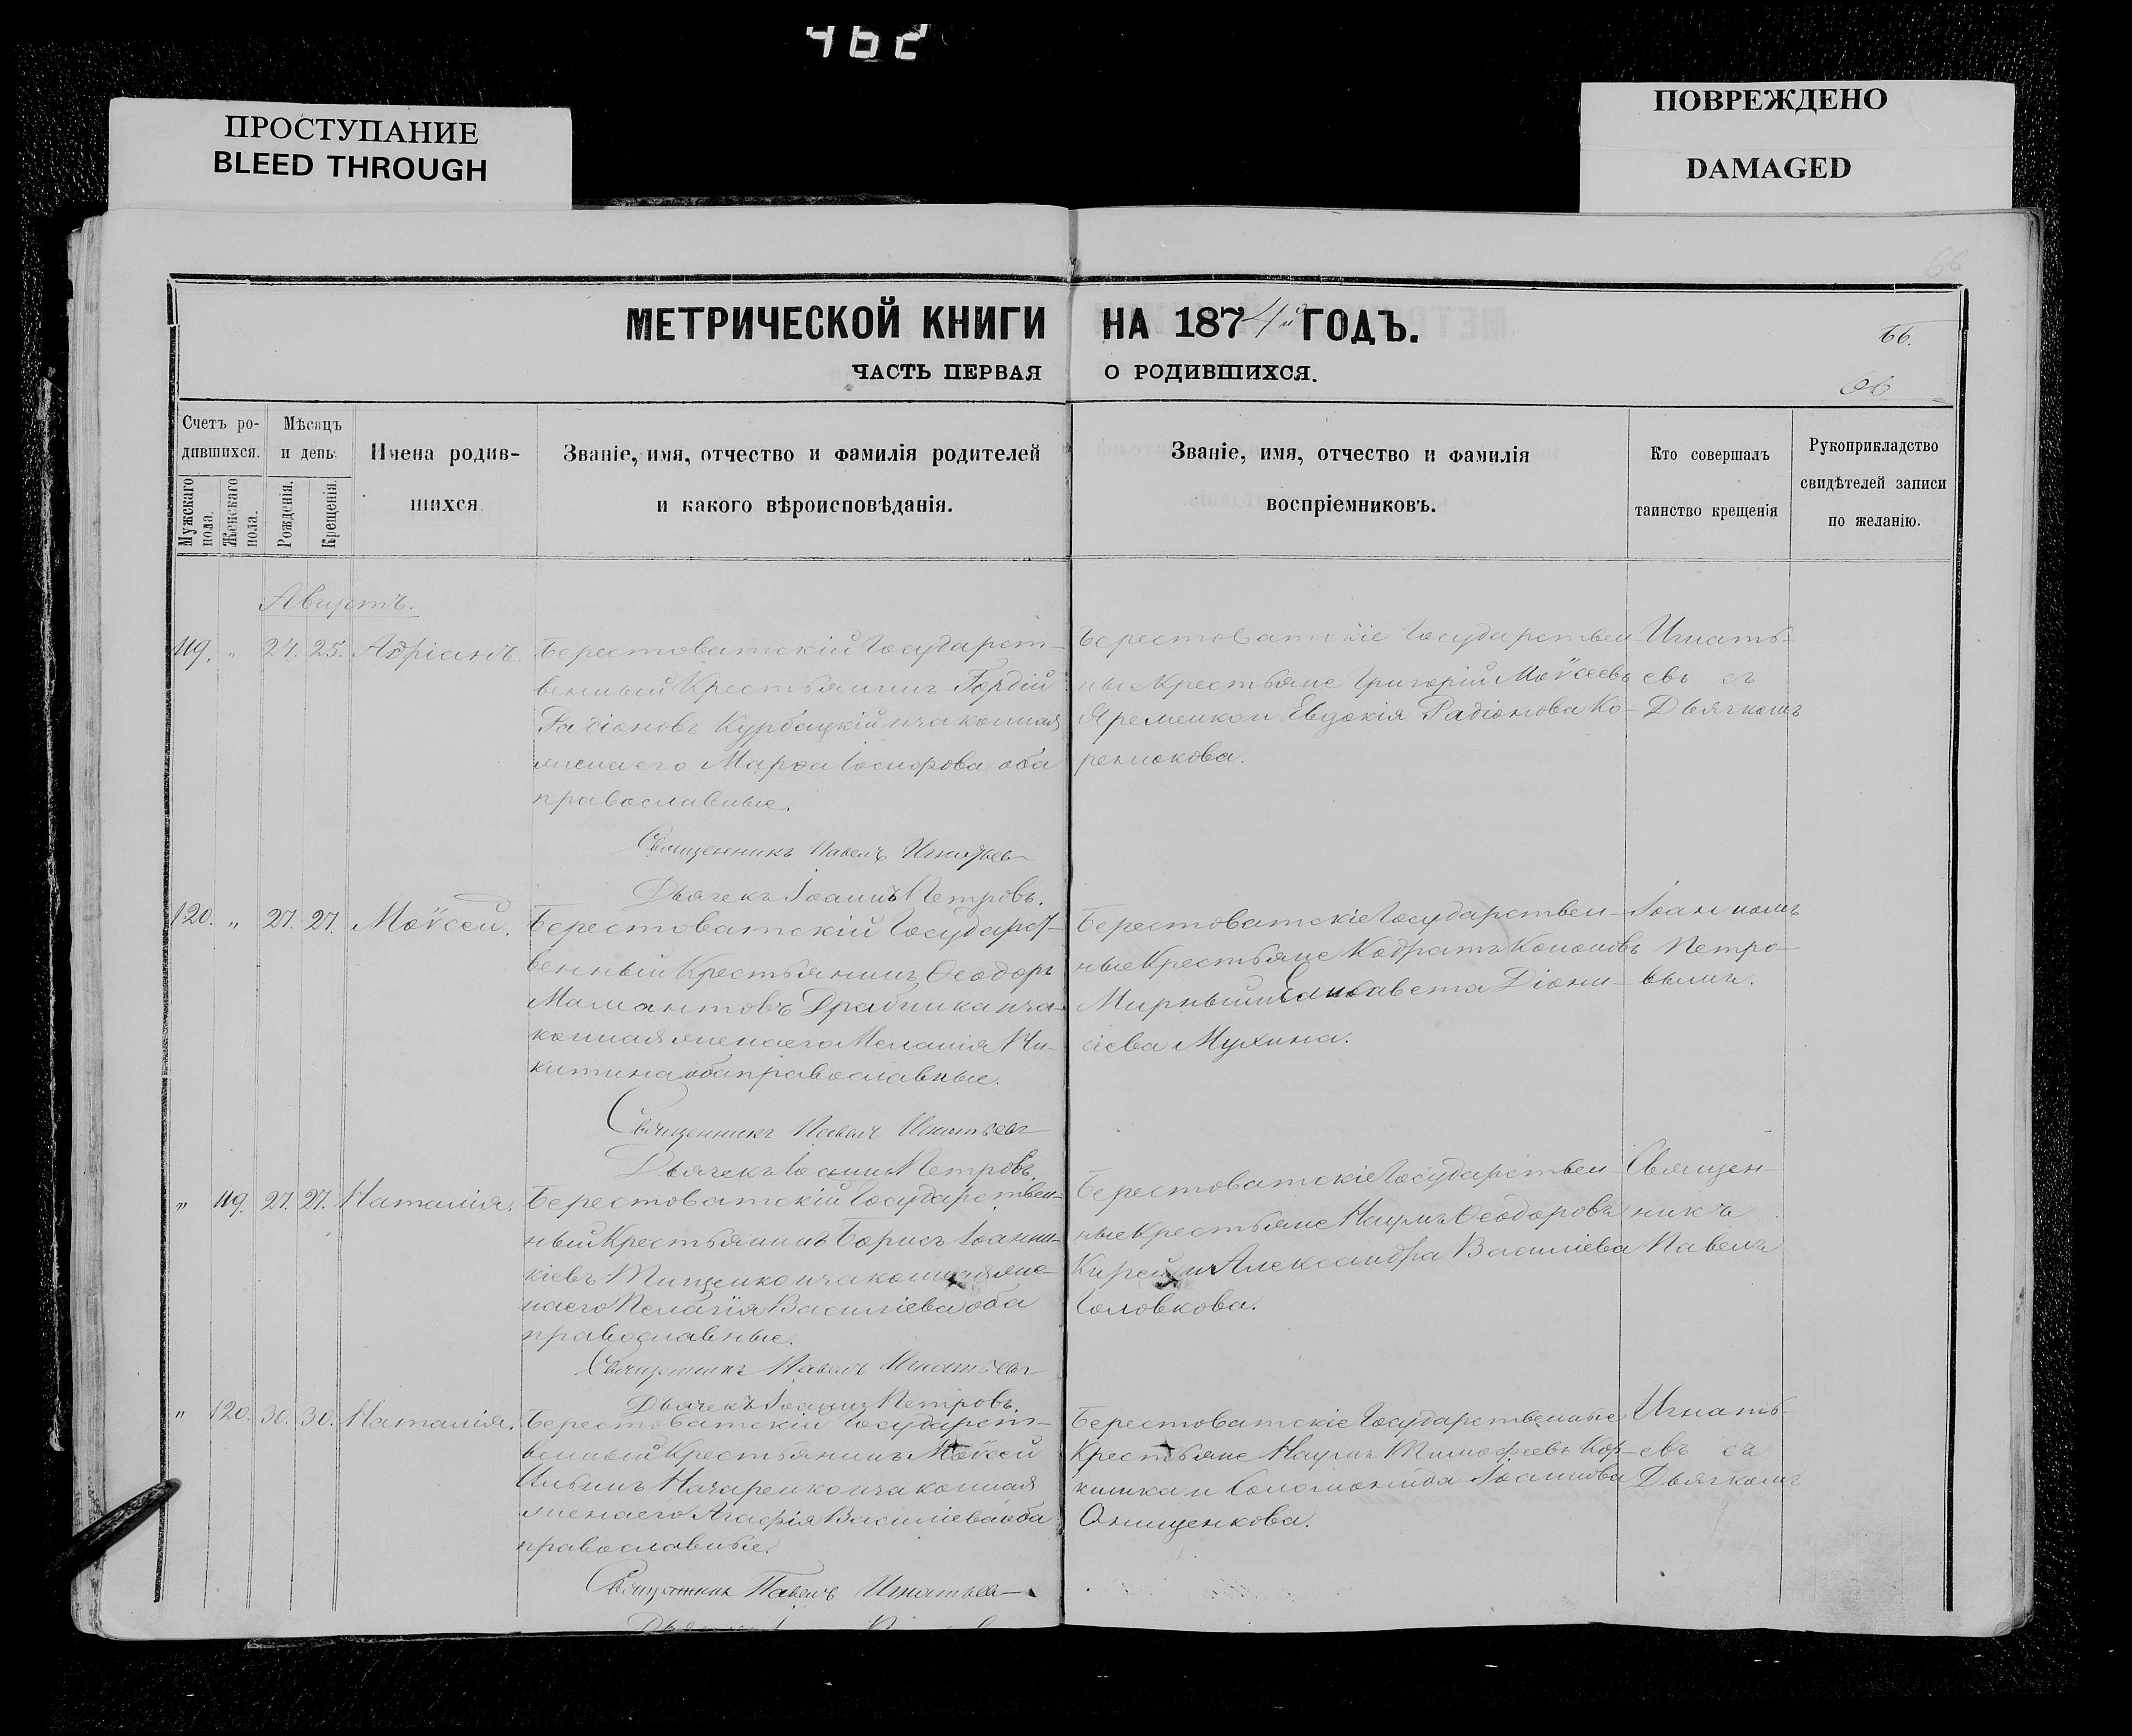 462
ПРОСТУПАНИЕ
BLEED THROUGH
ПОВРЕЖДЕНО
DAMAGED
МЕТРИЧЕСКОЙ КНИГИ НА 1874й ГОДЪ.
66.
ЧАСТЬ ПЕРВАЯ О РОДИВШИХСЯ.
66
Счетъ ро-
дившихся.
Мѣсяцъ
и день.
Имена родив-
шихся
Званіе, имя, отчество и фамилія родителей
и какого вѣроисповѣданія.
Званіе, имя, отчество и фамилія
воспріемниковъ.
Кто совершалъ
таинство крещенія
Рукоприкладство
свидѣтелей записи
по желанію.
Мужскаго
пола.
Женскаго
пола.
Рожденія.
Крещенія.
Августъ.
119. " 24. 25. Адріанъ.
Берестоватскій Государст-
венный Крестьянинъ Гордій
Радіоновъ Курбацкій и законная
жена его Марѳа Іосифова оба
православные.
Священникъ Павелъ Игнатьевъ
Дьячекъ Іоаннъ Петровъ.
Берестоватскіе Государствен-
ные Крестьяне Григорій Моѵсеевъ
Яременко и Евдокія Радіонова Ко-
ренюкова.
Игнать-
евъ съ
Дьячкомъ
120. " 27. 27. Моѵсей.
Берестоватскій Государст-
венный Крестьянинъ Ѳеодоръ
Мамантовъ Драбинка и за-
конная жена его Меланія Ни-
китина оба православные.
Священникъ Павелъ Игнатьевъ
Дьячекъ Іоаннъ Петровъ.
Берестоватскіе Государствен-
ные Крестьяне Кодратъ Кононовъ
Мирный и Елисавета Діони-
сіева Мухина.
Іоанномъ
Петро-
вымъ.
" 119. 27. 27. Наталія.
Берестоватскій Государствен-
ный Крестьянинъ Борисъ Іоанни-
кіевъ Тищенко и законная же-
на его Пелагія Василіева оба
православные.
Священникъ Павелъ Игнатьевъ
Дьячекъ Іоаннъ Петровъ.
Берестоватскіе Государствен-
ные Крестьяне Наумъ Ѳеодоровъ
Кирей и Александра Василіева
Головкова.
Священ-
никъ
Павелъ
" 120. 30. 30. Наталія.
Берестоватскій Государст-
венный Крестьянинъ Моѵсей
Ильинъ Начаренко и законная
жена его Агафія Василіева оба
православные.
Священникъ Павелъ Игнатьевъ
Берестоватскіе Государственные
Крестьяне Наумъ Тимофеевъ Кор-
and Соломонида Іоаннова
Онищенкова.
Игнать-
евъ съ
Дьячкомъ